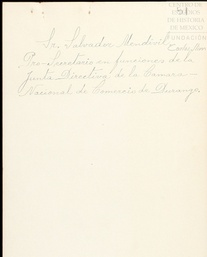 CENTRO DE
ESTUDIOS
DE HISTORIA
DE MEXICO
FUNDACIÓN
51
Sr. Salvador Mendivil,
Pro-Secretario en funciones de la
Junta Directiva de la Camara
Nacional de Comercio de Durango.